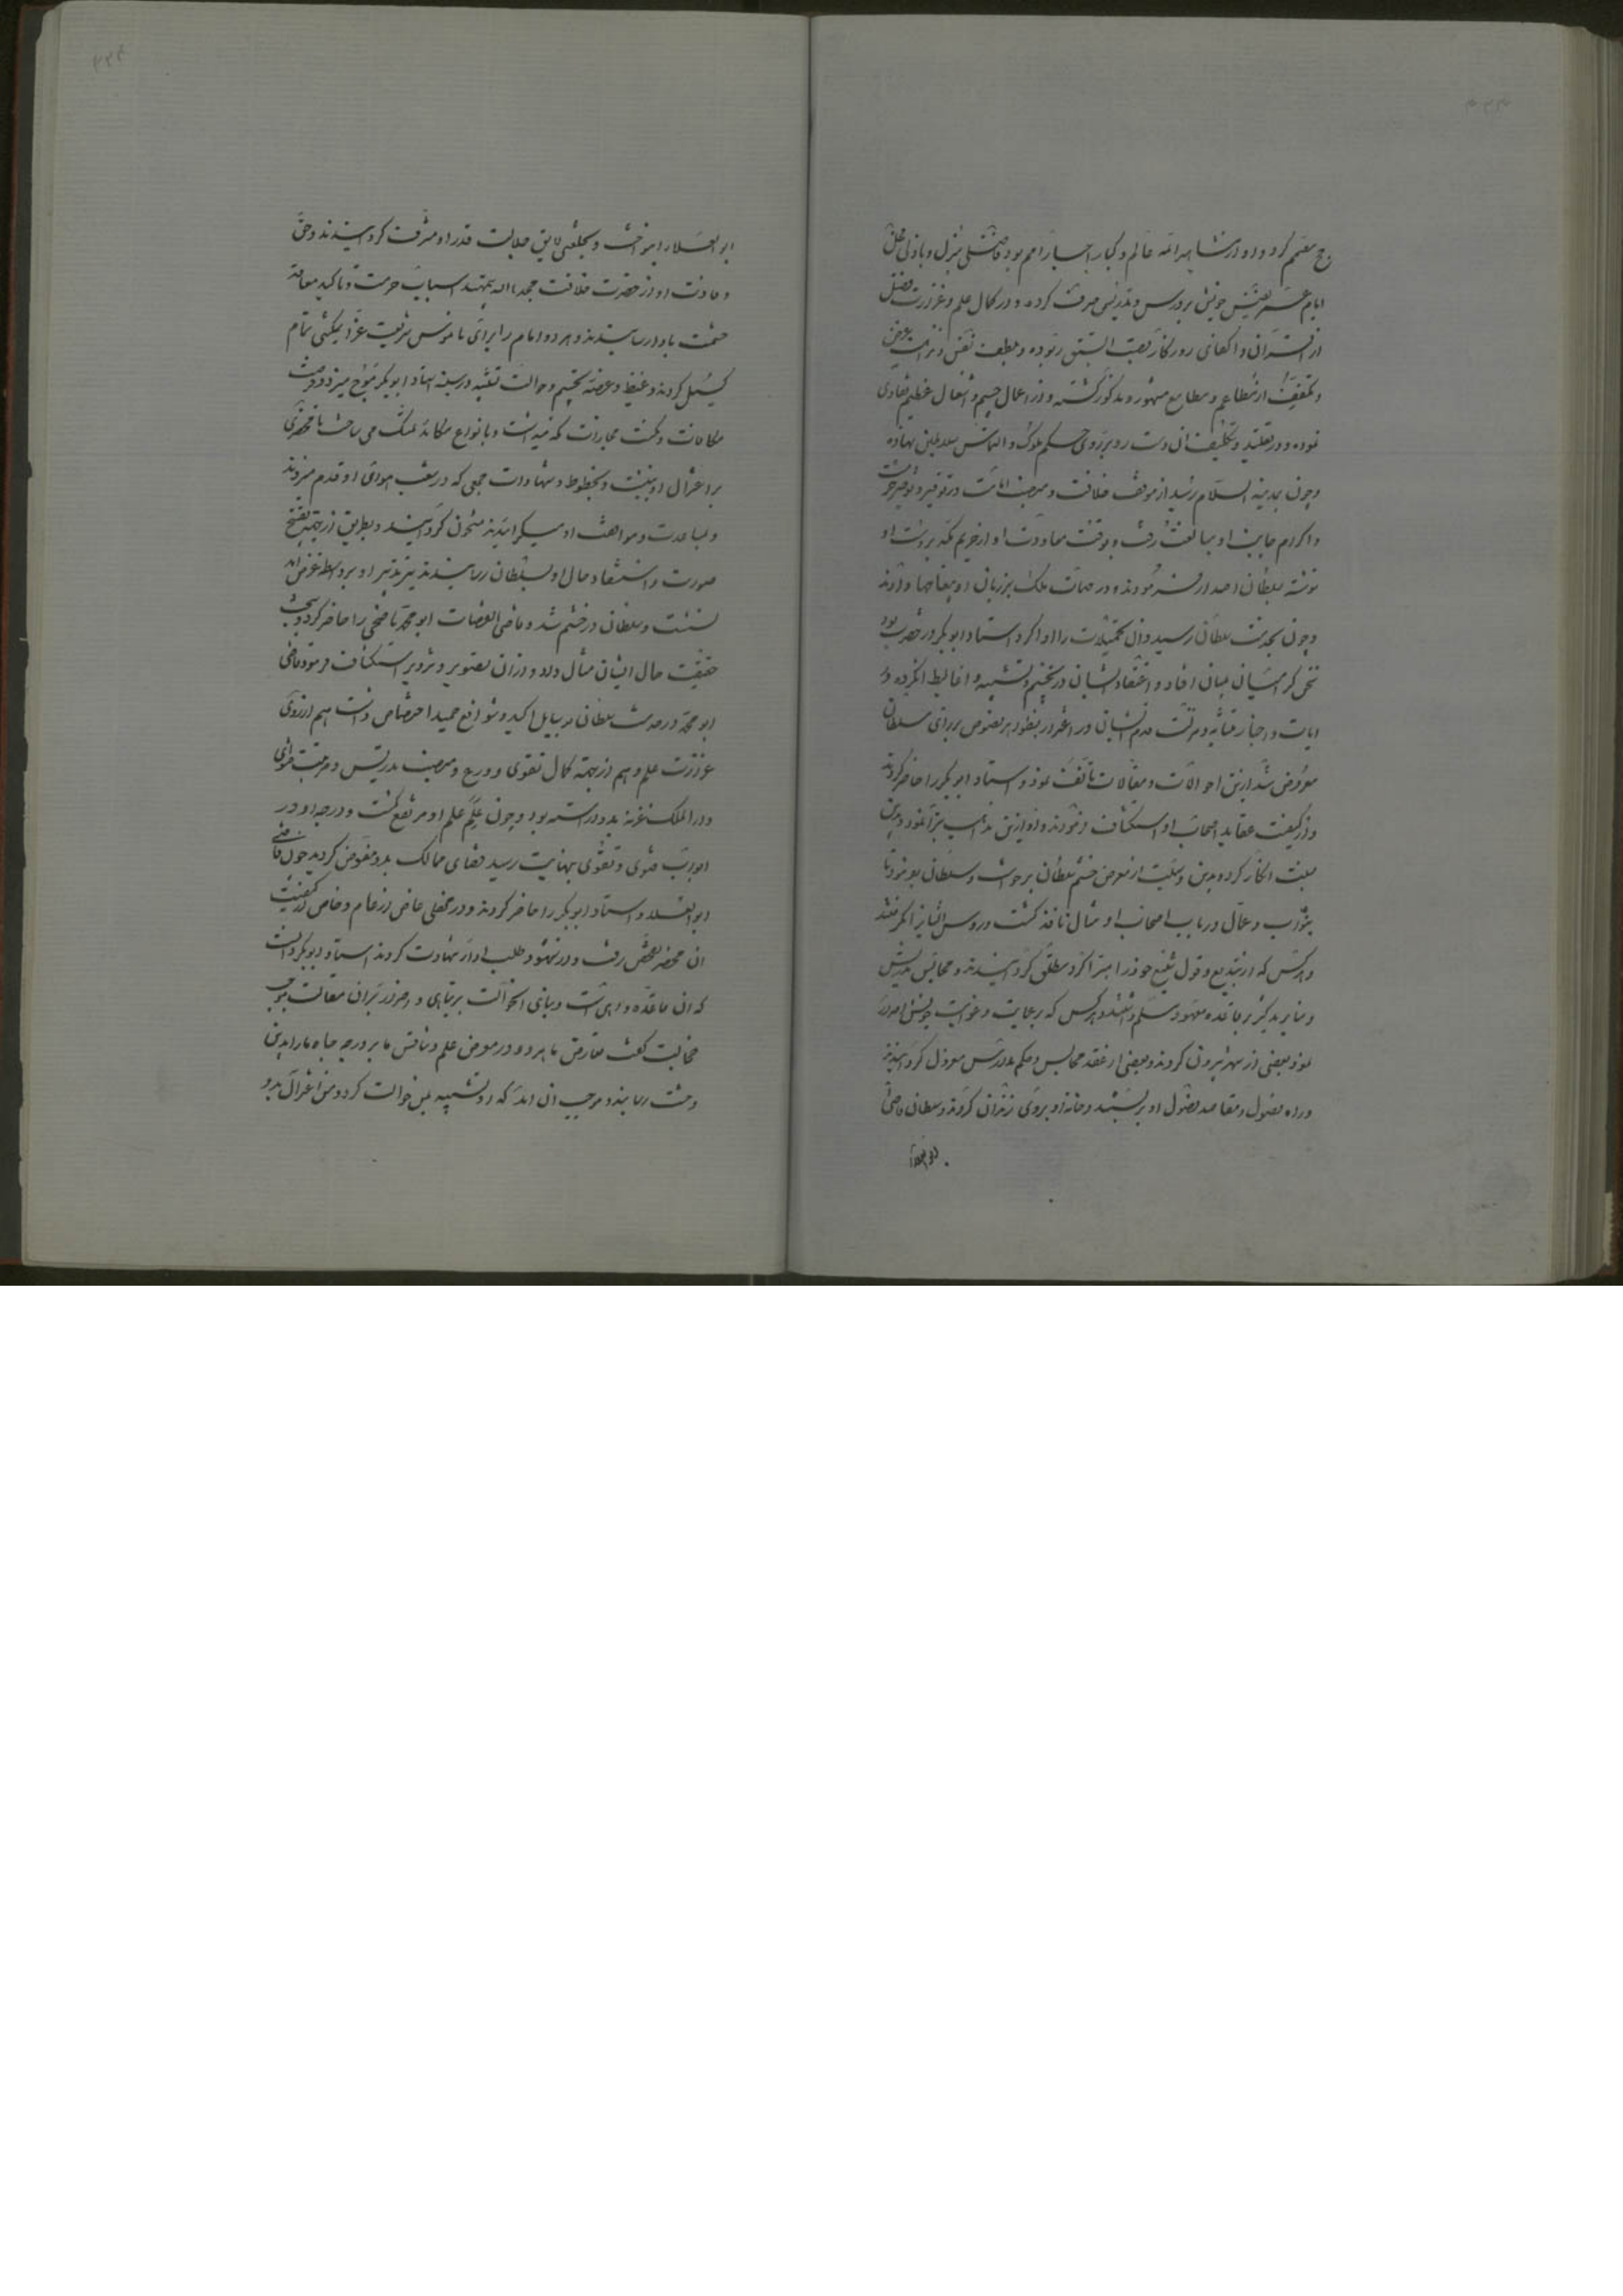 حج مصمم کرد و او از مشاهیر ائمه عالم و کبار احبار امم بود و فضلی جزل و باذلی فحل
ایام عمر نفیس خویش بر درس و تدریس صرف کرده و در کمال علم و غزارت فضل
از اقران و اکفای روزگار قصب السبق ربوده و بلطف نفس و نزاهت عرض
و تعفف از مطاعم و مطامع مشهور و مذکور گشته و از اعمال جسیم و اشغال عظیم تفادی
نموده و در تقلید و تکلیف آن دست رد بر روی حکم ملوک و التماس سلاطین نهاده
و چون بمدینه السلام رسید از موقف خلافت و منصب امامت در توقیر و توفیر حرمت
و اکرام جانب او مبالغت رفت و بوقت معاودت او از حریم مکه بر دست او
نوشته بسلطان اصدار فرمودند و در مهمات ملک بر زبان او پیغامها دادند
و چون بخدمت سلطان رسید و آن تحمیلات را ادا کرد استاد ابوبکر در حضرت بود
سخن کرامیان بمیان افتاد و اعتقاد ایشان در تجسیم و تشبیه و اغالیط
ایات و اخبار متشابه و مزلت قدم ایشان در اغترار بظواهر نصوص بر رای سلطان
معروض شد ازین احوالات و مقالات تأنف نمود و استاد ابوبکر را حاضر کردند
و از کیفیت عقاید اصحاب او استکشاف فرمودند و او ازین مذهب تبرا نمود و بدین
نسبت انکار کرد و بدین وسیلت از معرض خشم سلطان برخواست و سلطان بفرمود تا
بنواب و عمال در باب اصحاب او مثال نافذ گشت
و هرکس که از تبدیع و قول شنیع خود را مبرا کرد مطلق گردانیدند و مجالس تدریس
و منابر تذکیر بر قاعده معهود مسلم داشتند و هرکس که بر عمایت و غوایت خویش اصرار
نمود بعضی از شهر بیرون کردند و بعضی از عقد مجالس و حکم مدارس معزول گردانیدند
و راه فضول و مقاصد فضول او بر بستند و خانه او بر وی زندان کردند و سلطان قاضی
ابوالعلا
ابوالعلا را بنواخت و بخلعتی لایق جلالت قدر او مشرف گردانیدند و حق
وفادت او از حضرت خلافت بتمهید اسباب حرمت و تأکید معاقد
حشمت باد رسانیدند و هر دو امام را برای ناموس شریعت غرا بیکبتی تمام
گسیل کردند و غیظ و غصه تجسیم و حوالت تشبیه در سینه استاد ابوبکر موج میزد و فرصت
مکافات و مجازات گه میداشت و بانواع مکائد تمسک می ساخت تا محضری
بر اعتزال او بنبشت و بخطوط و شهادات جمعی که در شعب هوای او قدم میزدند
و بمساعدت و موافقت او مشحون گردانیدند و بطریق
صورت و استشهاد حال او بسلطان رسانیدند تیر تدبیر او بر واسطه غرض آمد
نشست و سلطان در خشم شد و قاضی القضات ابومحمد ناصحی را حاضر کرد و ببحث
حقیقت حال ایشان مثال داد و از آن تصویر و تزویر استکشاف فرمود و قاضی
ابومحمد در خدمت سلطان بوسایل اکید و شوافع حمید اختصاص داشت هم از روی
غزارت علم و هم از جهت کمال تقوی و ورع و منصب تدریس و مرتبت فتوی
و دار الملک غزنه بدو آراسته بود و چون علم علم او مرتفع گشت و درجه او در
ابواب فتوی و تقوی بنهایت رسید قضای ممالک بدو مفوض گردید چون قاضی
ابوالعلا و استاد ابوبکر را حاضر کردند و در محفلی غاص از عام و خاص از کیفیت
آن محضر تفحص رفت و از شهود طلب ادای شهادت کردند استاد ابوبکر دانست
که آن قاعده واهی است و مبانی آن حوالت بر تباهی
مخالبت گفت تعارض ما هر دو در معرض علم و تنافس ما بر درجه جاه ما را بدین
وحشت رسانید و موجب آن آمد که او تشبیه بمن حوالت کرد و من اعتزال بدو